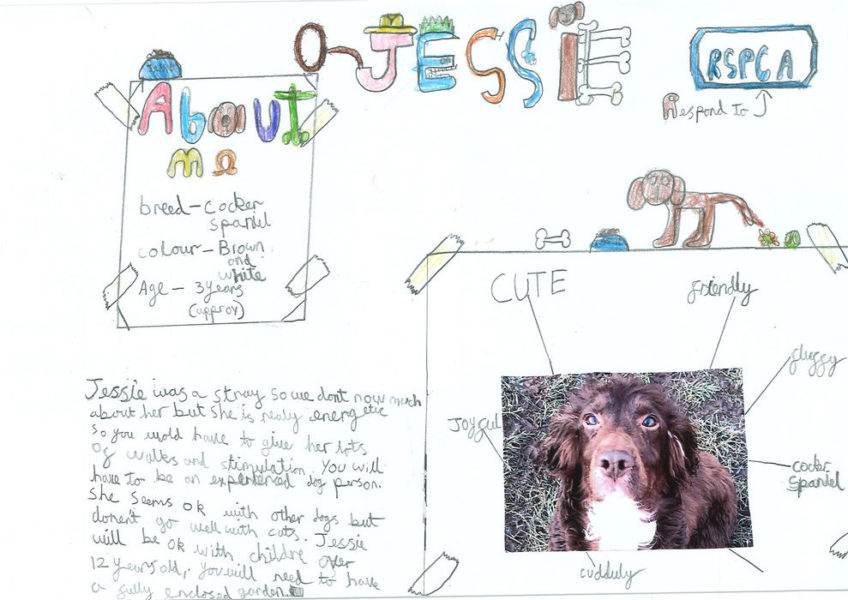 JESSIE
RSPCA
Respond to
About
me
breed - Cocker
spaniel
colour - Brown
and
white
Age - 3 years
(approx)
CUTE
friendly
fluffy
Joyful
cocker
spaniel
cudduly
Jessie was a stray so we dont now much
about her but she is realy energetic
so you would have to give her lots
of walkes and stimulation. You will
have to be an experienced dog person.
She seems ok with other dogs but
doesn't go well with cats. Jessie
will be ok with childre over
12 years old, you will need to have
a fully enclosed garden.